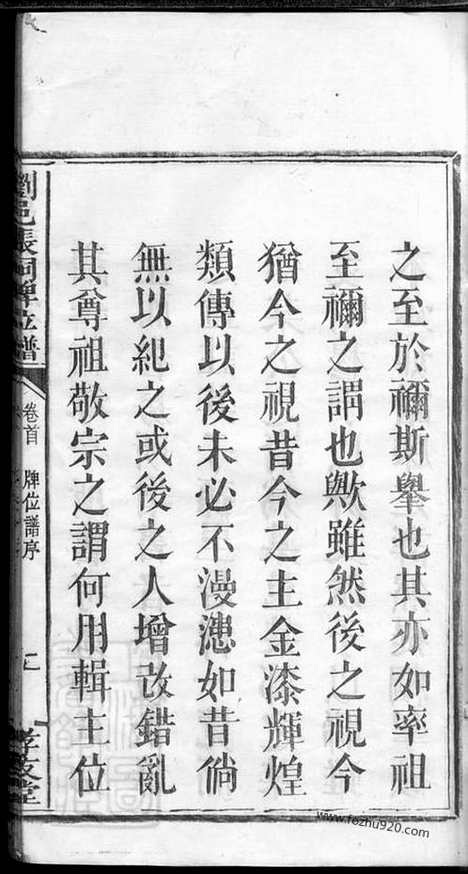 之至於禰斯舉也其亦如率祖
至禰之謂也歟雖然後之視今
猶今之視昔今之主金漆輝煌
類傳以後未必不漫漶如昔倘
無以紀之或後之人增改錯亂
其尊祖敬宗之謂何用輯主位
劉邑張祠牌位譜
卷首 牌位譜序
孝友堂
www.fozhu920.com